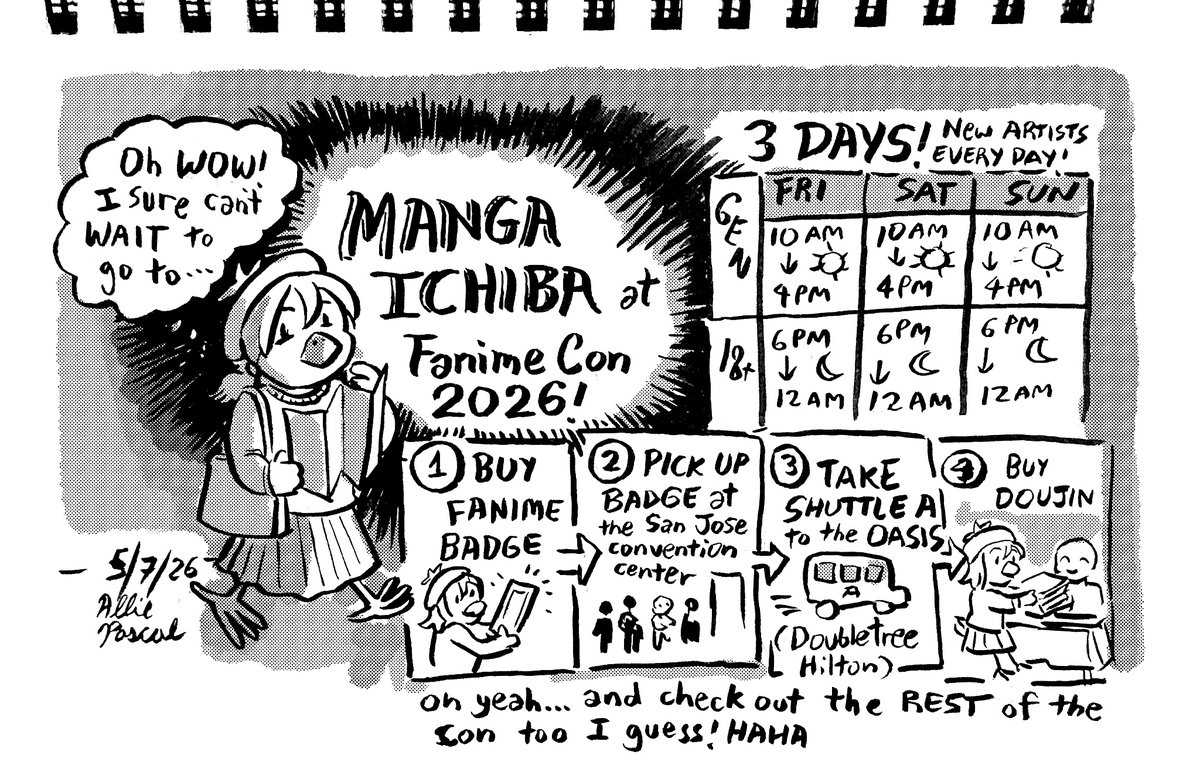 Oh WOW!
I sure can't
WAIT to
go to...
MANGA
ICHIBA at
Fanime Con
2026!
3 DAYS! New ARTISTS
EVERY DAY!
FRI SAT SUN
GEN
10 AM 10 AM 10 AM
4 PM 4 PM 4 PM
18+
6 PM 6 PM 6 PM
12 AM 12 AM 12 AM
1 BUY
FANIME
BADGE
2 PICK UP
BADGE at
the San Jose
convention
center
3 TAKE
SHUTTLE A
to the OASIS
A
(DoubleTree
Hilton)
4 BUY
DOUJIN
oh yeah... and check out the REST of the
con too I guess! HAHA
— 5/7/26
Allie
Pascal